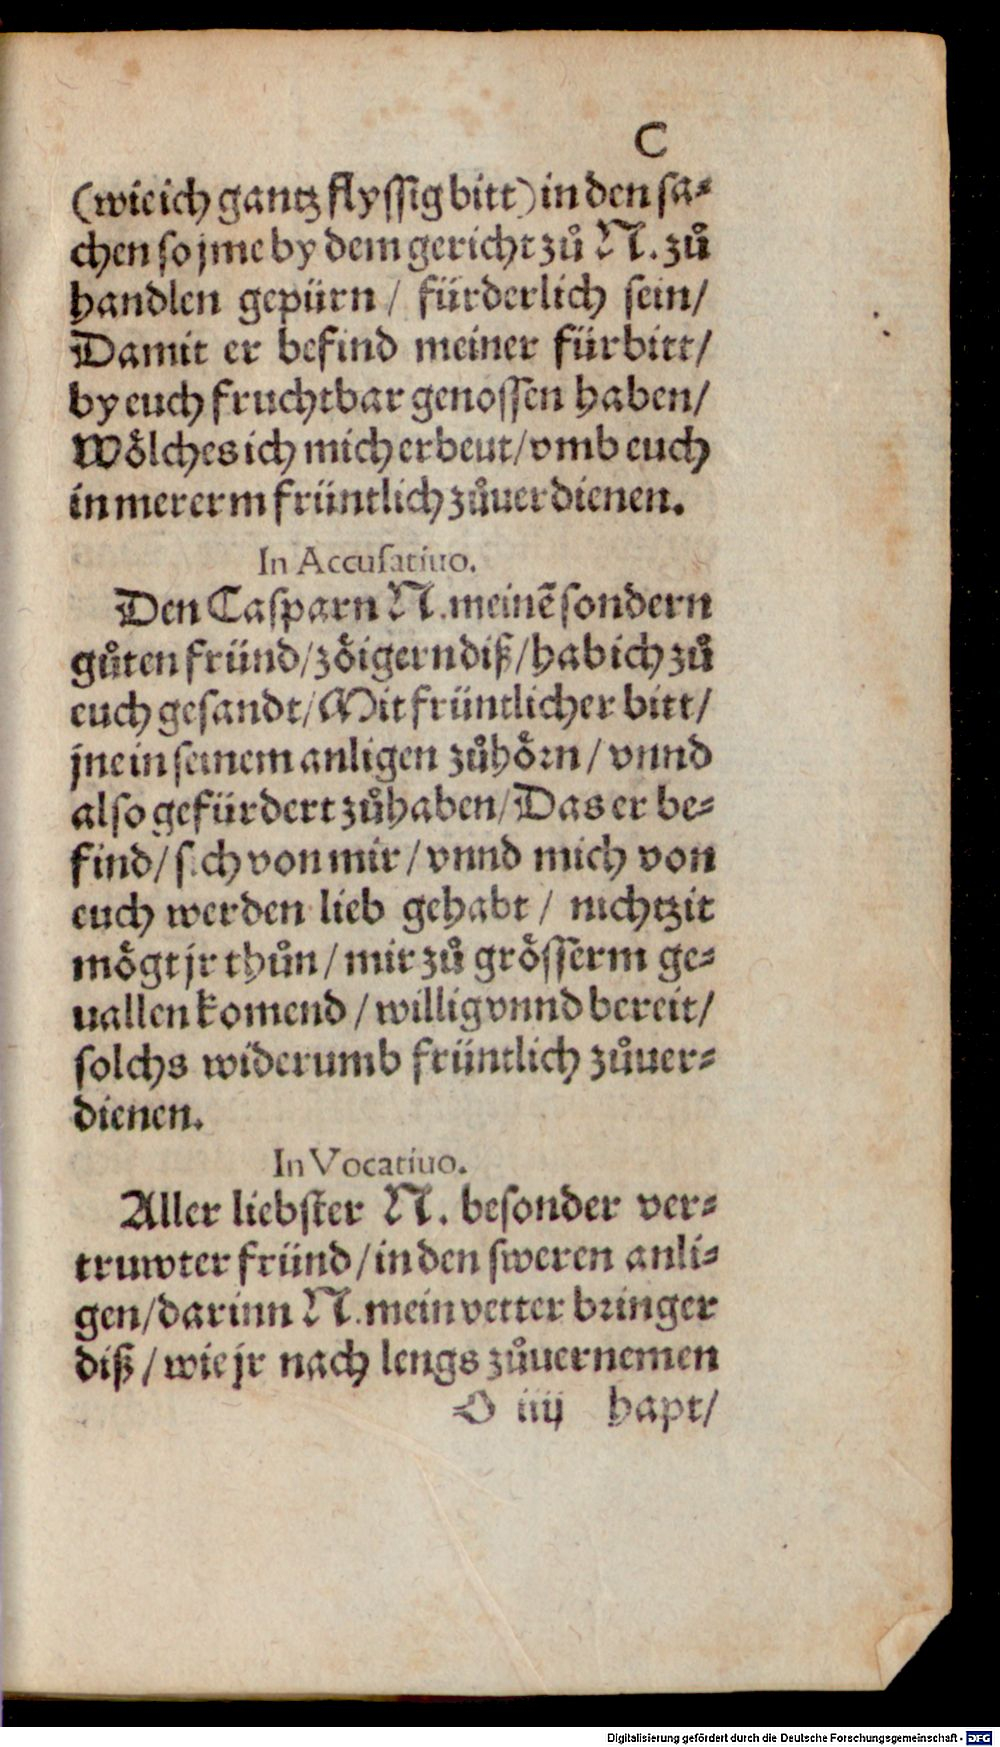 C
(wie ich gantz flyssig bitt) in den sa⸗
chen so jme by dem gericht zů N. zů
handlen gepürn / fürderlich sein/
Damit er befind meiner fürbitt/
by euch fruchtbar genossen haben/
Wölches ich mich erbeut/vmb euch
in mererm früntlich zůuerdienen.
In Accusatiuo.
Den Casparn N. meinẽ sondern
gůten fründ/zöigern diß/hab ich zů
euch gesandt/Mit früntlicher bitt/
jne in seinem anligen zůhörn / vnnd
also gefürdert zůhaben/Das er be⸗
find/sich von mir / vnnd mich von
euch werden lieb gehabt / nichtzit
mögt jr thůn / mir zů grösserm ge⸗
uallen komend / willig vnnd bereit/
solchs widerumb früntlich zůuer⸗
dienen.
In Vocatiuo.
Aller liebster N. besonder ver⸗
truwter fründ / in den sweren anli⸗
gen/darinn N. mein vetter bringer
diß / wie jr nach lengs zůuernemen
O iiij hapt/
Digitalisierung gefördert durch die Deutsche Forschungsgemeinschaft - DFG